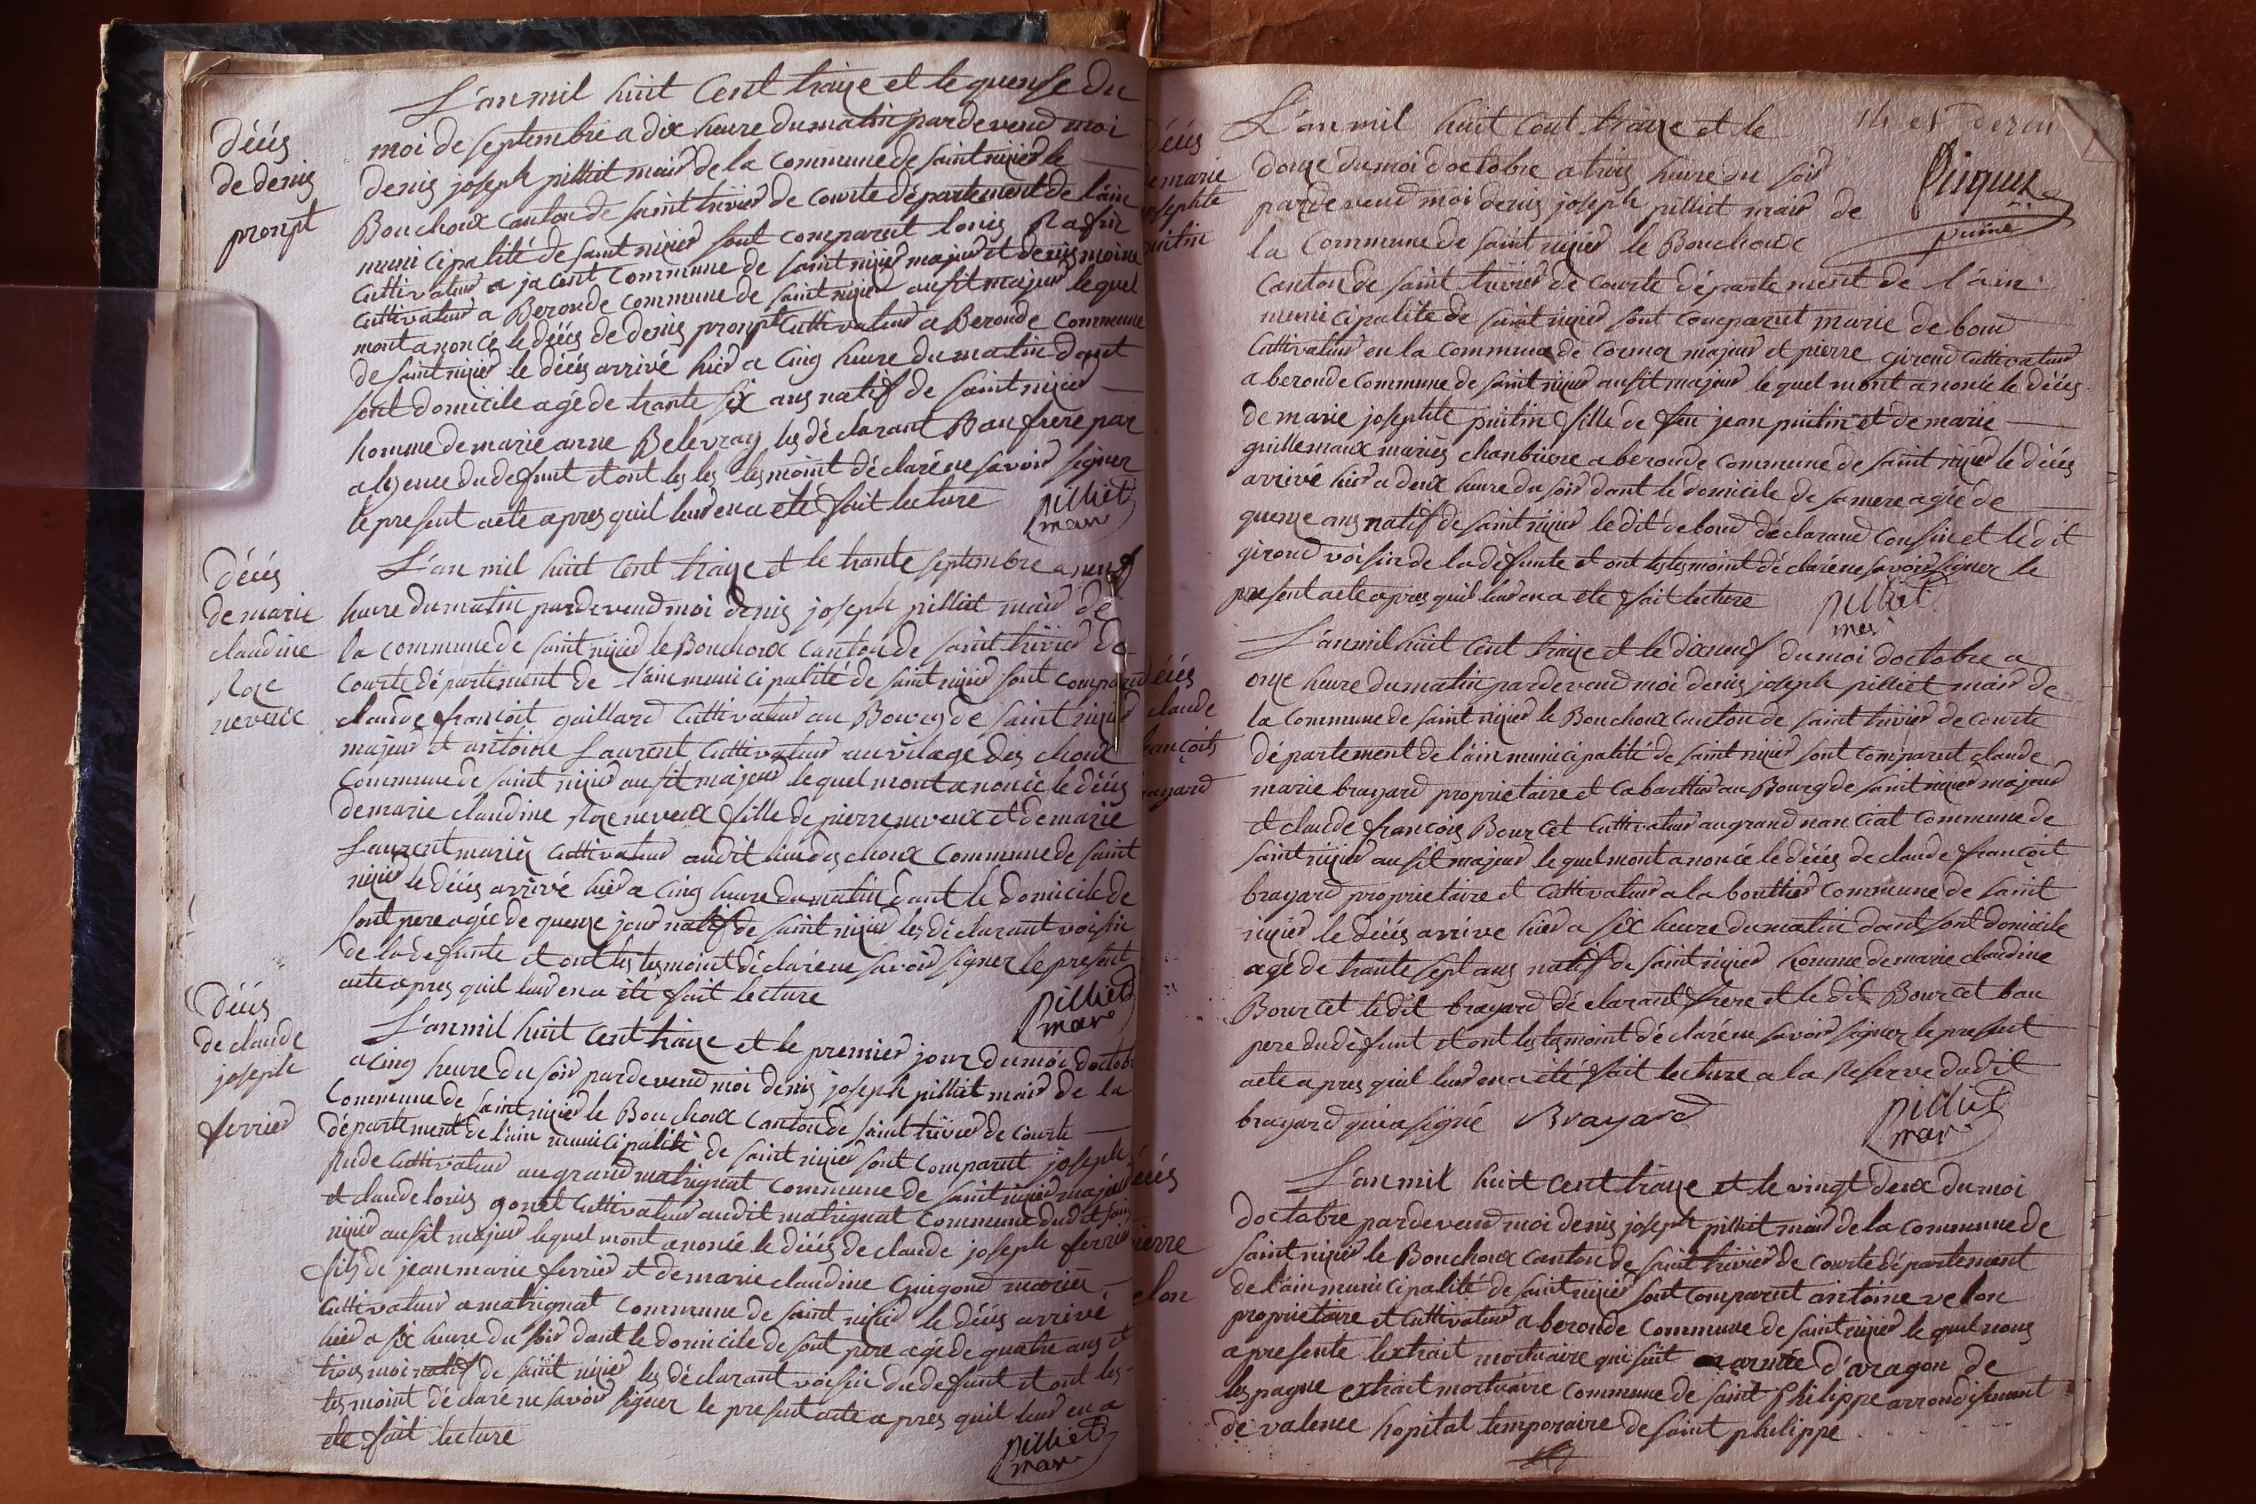 L'an mil huit Cent traize et le quense du
moi de septembre a dix heure du matin pardevend moi
Décés
de denis
pronpt
denis joseph pilliet mair de la Commune de saint nizier le
Bouchoux canton de saint trivier de courte département de l'ain
municipalité de saint nizier sont comparut louis Rafin
Cultivateur a jacont Commune de saint nizier majeur et denis moine
Cultivateur a Beronde Commune de saint nizier ausit majeur lequel
mont anoncé le décés de denis pronpt Cultivateur a Beronde Commune
de saint nizier le décés arrivé hier a cinq heure du matin dant
sont domicile agé de trante six ans natif de saint nizier
homme de marie anne Belevray les déclarant Bau frere par
aliense du defunt et ont les tesmoint déclaré ne savoir signer
le present acte apres quil leur en a été fait lecture
pilliet
mair
Décés
de marie
claudine
Roze
neveux
L'an mil huit Cent traize et le trante septembre a neuf
heure du matin pardevend moi denis joseph pilliet mair de
la commune de saint nizier le Bouchoux canton de saint trivier de
courte département de l'ain municipalité de saint nizier sont comparu
claude françoit gaillard Cultivateur au Bourg de saint nizier
majeur et antoine Laurent Cultivateur au vilage des choux
Commune de saint nizier ausit majeur lequel mont anoncé le décés
de marie claudine Roze neveux fille de pierre neveux et de marie
Laurent mariés Cultivateur audit lieu des choux Commune de saint
nizier le décés arrivé hier a cinq heure du matin dant le domicile de
sont pere agée de quenze jour natif de saint nizier les déclarant voisin
de la defunte et ont les tesmoint déclaré ne savoir signer le present
acte apres quil leur en a été fait lecture
pilliet
mair
Décés
de claude
joseph
ferrier
L'an mil huit Cent traize et le premier jour du moi doctobr
a cinq heure du soir pardevend moi denis joseph pilliet mair de la
Commune de saint nizier le Bouchoux canton de saint trivier de courte
département de l'ain municipalité de saint nizier sont comparut joseph
Rude Cultivateur au grand matrignat Commune de saint nizier majeur
et claude louis gonet Cultivateur audit matrignat Commune dudit saint
nizier ausit majeur lequel mont anoncé le décés de claude joseph ferrier
fils de jean marie ferrier et de marie claudine Guigond mariés
Cultivateur a matrignat Commune de saint nizier le décés arrivé
hier a six heure du soir dant le domicile de sont pere agé de quatre ans et
trois moi natif de saint nizier les déclarant voisin du defunt et ont les
tesmoint déclaré ne savoir signer le present acte apres quil leur en a
été fait lecture
pilliet
mair
14 et derin
puiné
Décés
de marie
josephte
puitin
L'an mil huit Cent traize et le
douze du moi doctobre a trois heure du soir
pardevend moi denis joseph pilliet mair de
la Commune de saint nizier le Bouchoux
canton de saint trivier de courte département de l'ain
municipalité de saint nizier sont comparut marie de boud
Cultivateur en la commune de Cormoz majeur et pierre giroud Cultivateur
a beronde Commune de saint nizier ausit majeur lequel mont anoncé le décés
de marie josephte puitin fille de feu jean puitin et de marie
guillemaux mariés chanbriere a beronde Commune de saint nizier le décés
arrivé hier a deux heure du soir dant le domicile de sa mere agée de
quenze ans natif de saint nizier le dit de boud déclarand Cousin et le dit
giroud voisin de la defunte et ont les tesmoint déclaré ne savoir signer le
present acte apres quil leur en a été fait lecture
pilliet
mair
Décés
claude
françoit
brayard
L'an mil huit Cent traize et le dixneuf du moi doctobre a
onze heure du matin pardevend moi denis joseph pilliet mair de
la Commune de saint nizier le Bouchoux canton de saint trivier de courte
département de l'ain municipalité de saint nizier sont comparut claude
marie brayard proprietaire et Cabarttier au Bourg de saint nizier majeur
et claude françois Bourcet Cultivateur au grand nanciat Commune de
saint nizier ausit majeur lequel mont anoncé le décés de claude françoit
brayard proprietaire et Cultivateur a la bouttier Commune de saint
nizier le décés arrivé hier a six heure du matin dant sont domicile
agé de trante sept ans natif de saint nizier homme de marie claudine
Bourcet le dit brayard déclarant frere et le dit Bourcet bau
pere du défunt et ont les tesmoint déclaré ne savoir signer le present
acte apres quil leur en a été fait lecture a la Reserve dudit
brayard qui a signé Brayard
pilliet
mair
Décés
pierre
velon
L'an mil huit cent traize et le vingt deux du moi
doctobre pardevend moi denis joseph pilliet mair de la commune de
saint nizier le Bouchoux canton de saint trivier de courte département
de l'ain municipalité de saint nizier sont comparut antoine velon
proprietaire et Cultivateur a beronde Commune de saint nizier le quel nous
a presente lextrait mortuaire qui suit armée d'aragon de
lespagne extrait mortuaire Commune de saint philippe arrondisement
de valence hopital temporaire de saint philippe